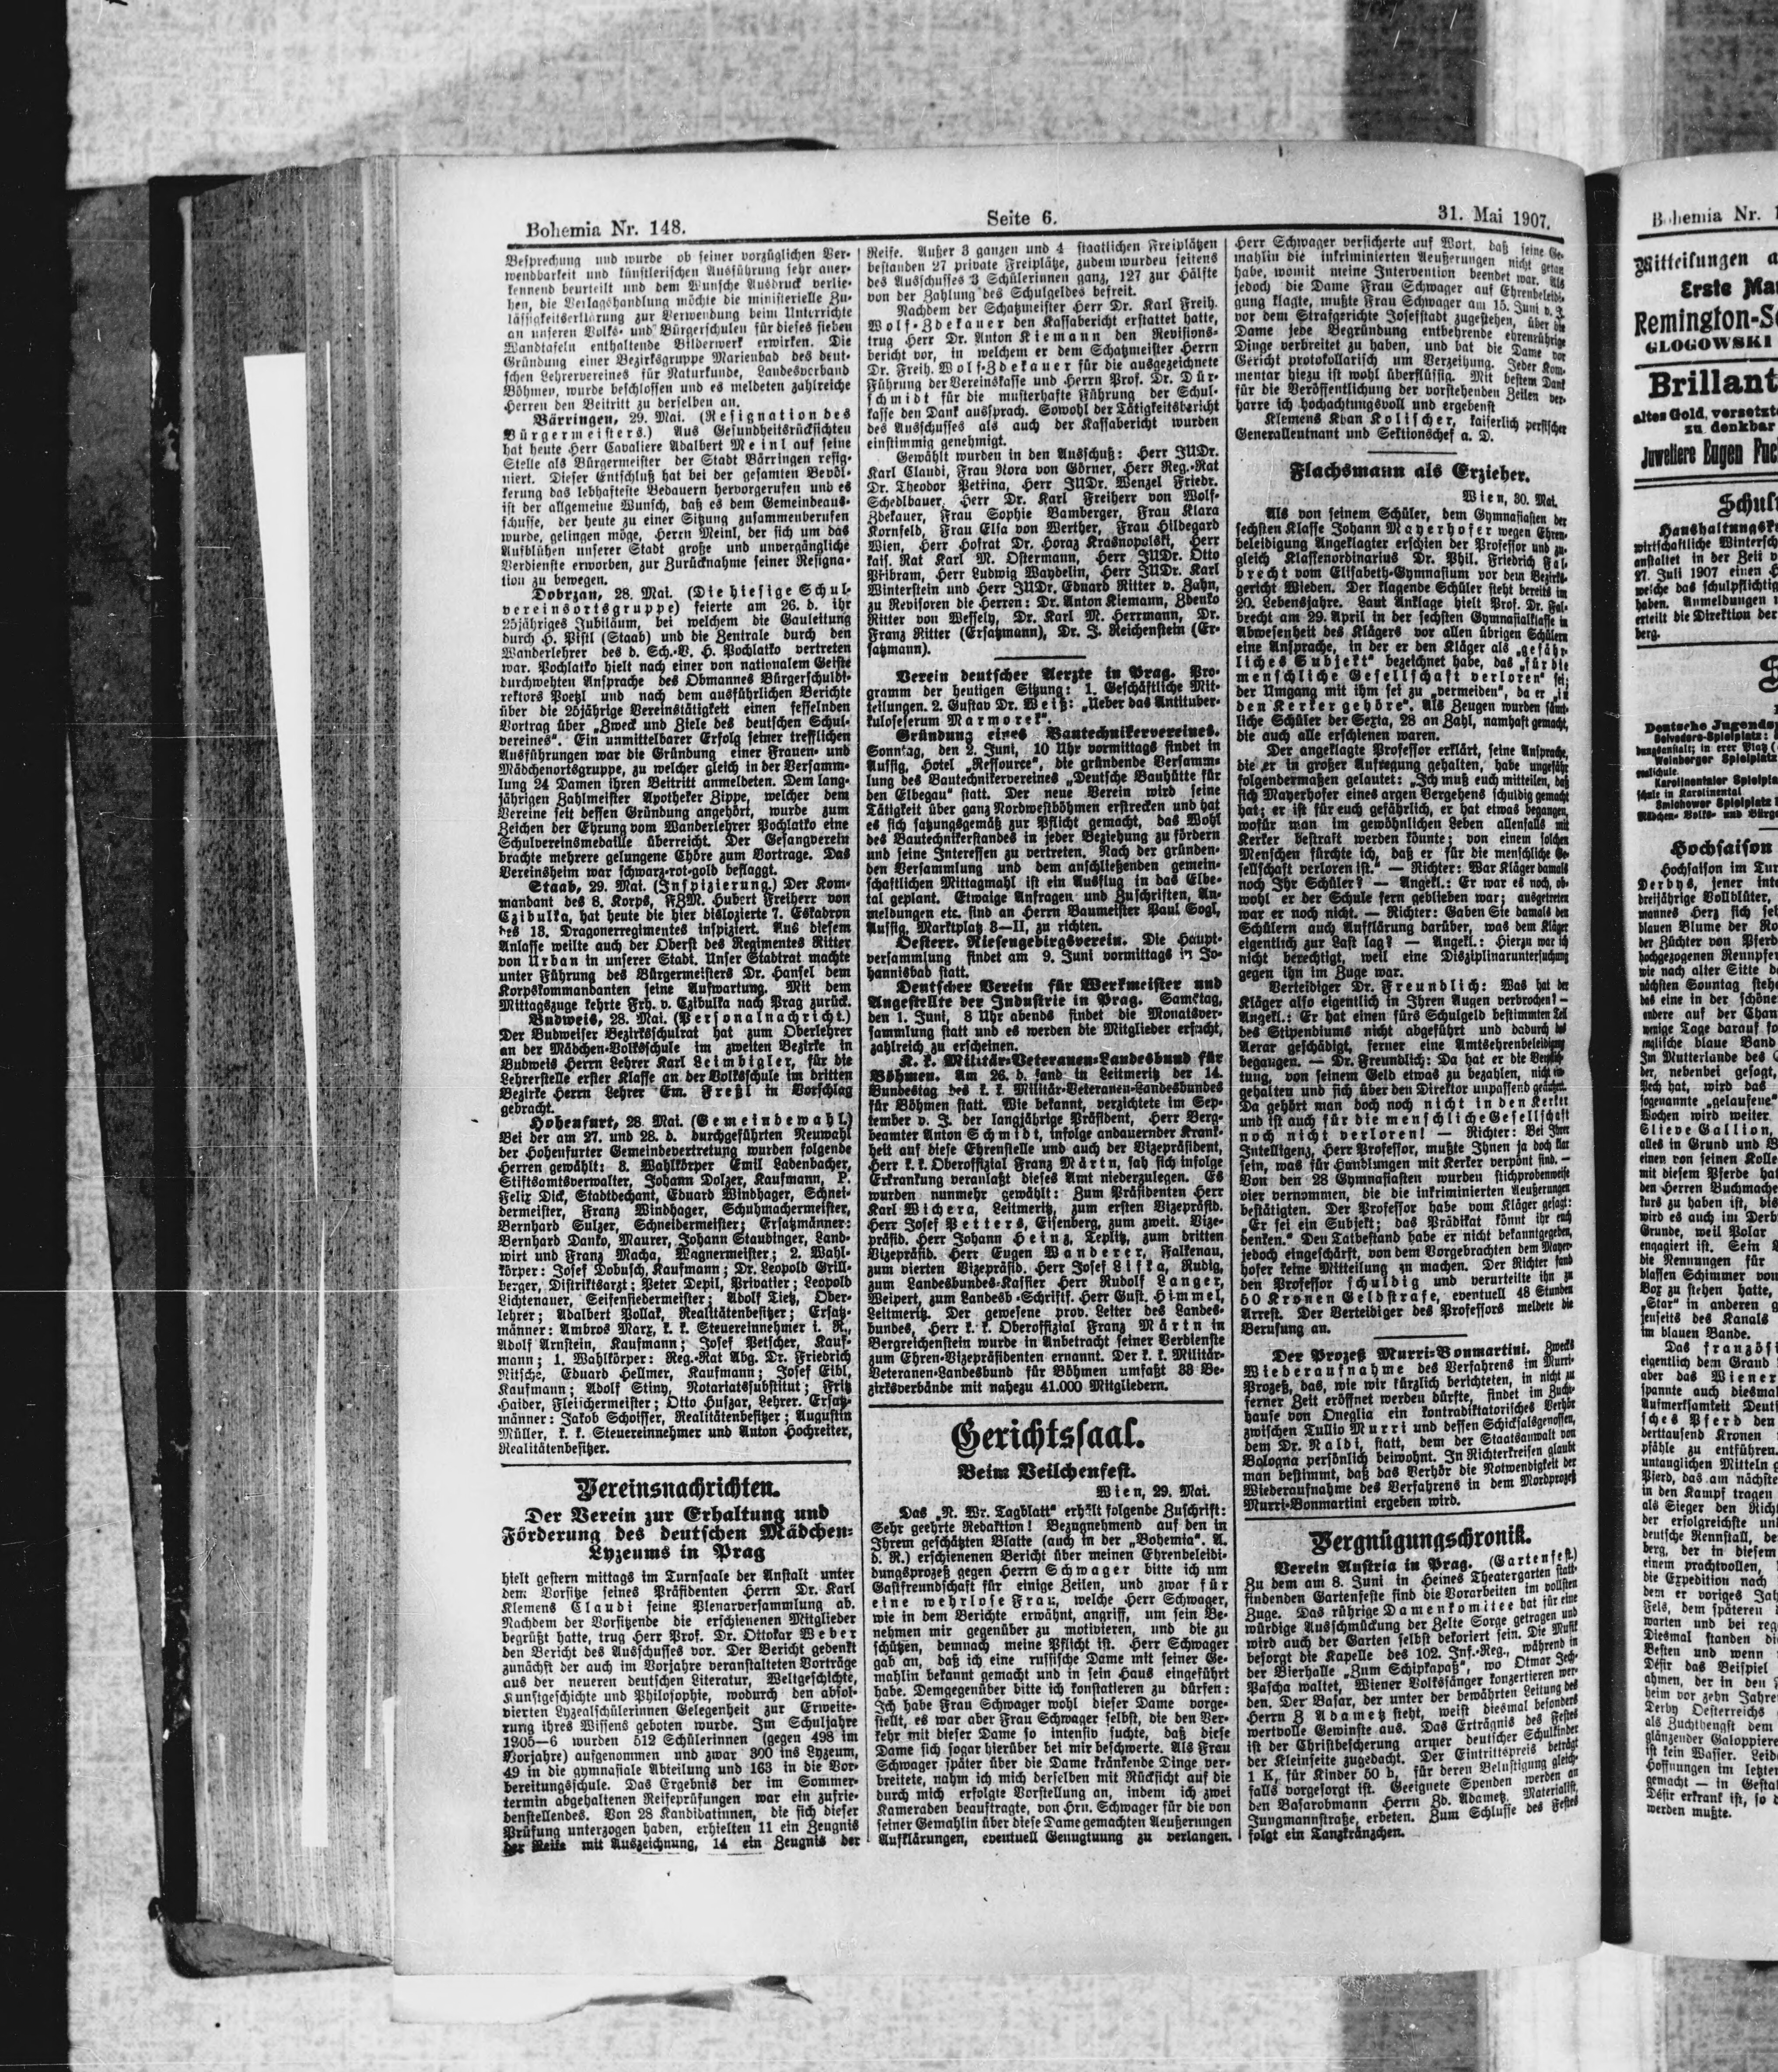 Bohemia Nr. 148.
Seite 6.
31. Mai 1907.
Besprechung und wurde ob seiner vorzüglichen Ver-
wendbarkeit und künstlerischen Ausführung sehr aner-
kennend beurteilt und dem Wunsche Ausdruck verlie-
hen, die Verlagshandlung möchte die ministerielle Zu-
lässigkeitserklärung zur Verwendung beim Unterrichte
an unseren Volks- und Bürgerschulen für dieses sieben
Wandtafeln enthaltende Bilderwerk erwirken. Die
Gründung einer Bezirksgruppe Marienbad des deut-
schen Lehrervereines für Naturkunde, Landesverband
Böhmen, wurde beschlossen und es meldeten zahlreiche
Herren den Beitritt zu derselben an.
Bärringen, 29. Mai. (Resignation des
Bürgermeisters.) Aus Gesundheitsrücksichten
hat heute Herr Cavaliere Adalbert Meinl auf seine
Stelle als Bürgermeister der Stadt Bärringen resig-
niert. Dieser Entschluß hat bei der gesamten Bevöl-
kerung das lebhafteste Bedauern hervorgerufen und es
ist der allgemeine Wunsch, daß es dem Gemeindeaus-
schusse, der heute zu einer Sitzung zusammenberufen
wurde, gelingen möge, Herrn Meinl, der sich um das
Aufblühen unserer Stadt große und unvergängliche
Verdienste erworben, zur Zurücknahme seiner Resigna-
tion zu bewegen.
Dobrzan, 28. Mai. (Die hiesige Schul-
vereinsortsgruppe) feierte am 26. d. ihr
25jähriges Jubiläum, bei welchem die Gauleitung
durch H. Pistl (Staab) und die Zentrale durch den
Wanderlehrer des d. Sch.-V. H. Pochlatko vertreten
war. Pochlatko hielt nach einer von nationalem Geiste
durchwehten Ansprache des Obmannes Bürgerschuldi-
rektors Poetzl und nach dem ausführlichen Berichte
über die 25jährige Vereinstätigkeit einen fesselnden
Vortrag über „Zweck und Ziele des deutschen Schul-
vereines“. Ein unmittelbarer Erfolg seiner trefflichen
Ausführungen war die Gründung einer Frauen- und
Mädchenortsgruppe, zu welcher gleich in der Versamm-
lung 24 Damen ihren Beitritt anmeldeten. Dem lang-
jährigen Zahlmeister Apotheker Zippe, welcher dem
Vereine seit dessen Gründung angehört, wurde zum
Zeichen der Ehrung vom Wanderlehrer Pochlatko eine
Schulvereinsmedaille überreicht. Der Gesangverein
brachte mehrere gelungene Chöre zum Vortrage. Das
Vereinsheim war schwarz-rot-gold beflaggt.
Staab, 29. Mai. (Inspizierung.) Der Kom-
mandant des 8. Korps, FZM. Hubert Freiherr von
Czibulka, hat heute die hier dislozierte 7. Eskadron
des 13. Dragonerregimentes inspiziert. Aus diesem
Anlasse weilte auch der Oberst des Regimentes Ritter
von Urban in unserer Stadt. Unser Stadtrat machte
unter Führung des Bürgermeisters Dr. Hansel dem
Korpskommandanten seine Aufwartung. Mit dem
Mittagszuge kehrte Frh. v. Czibulka nach Prag zurück.
Budweis, 28. Mai. (Personalnachricht.)
Der Budweiser Bezirksschulrat hat zum Oberlehrer
an der Mädchen-Volksschule im zweiten Bezirke in
Budweis Herrn Lehrer Karl Leimbigler, für die
Lehrerstelle erster Klasse an der Volksschule im dritten
Bezirke Herrn Lehrer Em. Freßl in Vorschlag
gebracht.
Hohenfurt, 28. Mai. (Gemeindewahl.)
Bei der am 27. und 28. d. durchgeführten Neuwahl
der Hohenfurter Gemeindevertretung wurden folgende
Herren gewählt: 3. Wahlkörper Emil Ladenbacher,
Stiftsamtsverwalter, Johann Dolzer, Kaufmann, P.
Felix Dick, Stadtdechant, Eduard Windhager, Schnei-
dermeister, Franz Windhager, Schuhmachermeister,
Bernhard Sulzer, Schneidermeister; Ersatzmänner:
Bernhard Danko, Maurer, Johann Staudinger, Land-
wirt und Franz Macha, Wagnermeister; 2. Wahl-
körper: Josef Dobusch, Kaufmann; Dr. Leopold Grill-
berger, Distriktsarzt; Peter Depil, Privatier; Leopold
Lichtenauer, Seifensiedermeister; Adolf Tietz, Ober-
lehrer; Adalbert Pollak, Realitätenbesitzer; Ersatz-
männer: Ambros Marx, k. k. Steuereinnehmer i. R.,
Adolf Arnstein, Kaufmann; Josef Petscher, Kauf-
mann; 1. Wahlkörper: Reg.-Rat Abg. Dr. Friedrich
Nitsche, Eduard Hellmer, Kaufmann; Josef Eibl,
Kaufmann; Adolf Stiny, Notariatssubstitut; Fritz
Haider, Fleischermeister; Otto Huszar, Lehrer. Ersatz-
männer: Jakob Schoisser, Realitätenbesitzer; Augustin
Müller, k. k. Steuereinnehmer und Anton Hochreiter,
Realitätenbesitzer.
Vereinsnachrichten.
Der Verein zur Erhaltung und
Förderung des deutschen Mädchen-
Lyzeums in Prag
hielt gestern mittags im Turnsaale der Anstalt unter
dem Vorsitze seines Präsidenten Herrn Dr. Karl
Klemens Claudi seine Plenarversammlung ab.
Nachdem der Vorsitzende die erschienenen Mitglieder
begrüßt hatte, trug Herr Prof. Dr. Ottokar Weber
den Bericht des Ausschusses vor. Der Bericht gedenkt
zunächst der auch im Vorjahre veranstalteten Vorträge
aus der neueren deutschen Literatur, Weltgeschichte,
Kunstgeschichte und Philosophie, wodurch den absol-
vierten Lyzealschülerinnen Gelegenheit zur Erweite-
rung ihres Wissens geboten wurde. Im Schuljahre
1905—6 wurden 512 Schülerinnen (gegen 498 im
Vorjahre) aufgenommen und zwar 300 ins Lyzeum,
49 in die gymnasiale Abteilung und 163 in die Vor-
bereitungsschule. Das Ergebnis der im Sommer-
termin abgehaltenen Reifeprüfungen war ein zufrie-
denstellendes. Von 28 Kandidatinnen, die sich dieser
Prüfung unterzogen haben, erhielten 11 ein Zeugnis
der Reife mit Auszeichnung, 14 ein Zeugnis der
Reife. Außer 3 ganzen und 4 staatlichen Freiplätzen
bestanden 27 private Freiplätze, zudem wurden seitens
des Ausschusses 3 Schülerinnen ganz, 127 zur Hälfte
von der Zahlung des Schulgeldes befreit.
Nachdem der Schatzmeister Herr Dr. Karl Freih.
Wolf-Zdekauer den Kassabericht erstattet hatte,
trug Herr Dr. Anton Kiemann den Revisions-
bericht vor, in welchem er dem Schatzmeister Herrn
Dr. Freih. Wolf-Zdekauer für die ausgezeichnete
Führung der Vereinskasse und Herrn Prof. Dr. Dür-
schmidt für die musterhafte Führung der Schul-
kasse den Dank aussprach. Sowohl der Tätigkeitsbericht
des Ausschusses als auch der Kassabericht wurden
einstimmig genehmigt.
Gewählt wurden in den Ausschuß: Herr JUDr.
Karl Claudi, Frau Nora von Görner, Herr Reg.-Rat
Dr. Theodor Petřina, Herr JUDr. Wenzel Friedr.
Schedlbauer, Herr Dr. Karl Freiherr von Wolf-
Zdekauer, Frau Sophie Bamberger, Frau Klara
Kornfeld, Frau Elsa von Werther, Frau Hildegard
Wien, Herr Hofrat Dr. Horaz Krasnopolski, Herr
kais. Rat Karl M. Ostermann, Herr JUDr. Otto
Pribram, Herr Ludwig Waydelin, Herr JUDr. Karl
Winterstein und Herr JUDr. Eduard Ritter v. Zahn,
zu Revisoren die Herren: Dr. Anton Kiemann, Zdenko
Ritter von Wessely, Dr. Karl M. Herrmann, Dr.
Franz Ritter (Ersatzmann), Dr. J. Reichenstein (Er-
satzmann).
Verein deutscher Aerzte in Prag. Pro-
gramm der heutigen Sitzung: 1. Geschäftliche Mit-
teilungen. 2. Gustav Dr. Weiß: „Ueber das Antituber-
kuloseserum Marmorek“.
Gründung eines Bautechnikervereines.
Sonntag, den 2. Juni, 10 Uhr vormittags findet in
Aussig, Hotel „Ressource“, die gründende Versamm-
lung des Bautechnikervereines „Deutsche Bauhütte für
den Elbegau“ statt. Der neue Verein wird seine
Tätigkeit über ganz Nordwestböhmen erstrecken und hat
es sich satzungsgemäß zur Pflicht gemacht, das Wohl
des Bautechnikerstandes in jeder Beziehung zu fördern
und seine Interessen zu vertreten. Nach der gründen-
den Versammlung und dem anschließenden gemein-
schaftlichen Mittagmahl ist ein Ausflug in das Elbe-
tal geplant. Etwaige Anfragen und Zuschriften, An-
meldungen etc. sind an Herrn Baumeister Paul Gogl,
Aussig, Marktplatz 3—II, zu richten.
Oesterr. Riesengebirgsverein. Die Haupt-
versammlung findet am 9. Juni vormittags in Jo-
hannisbad statt.
Deutscher Verein für Werkmeister und
Angestellte der Industrie in Prag. Samstag,
den 1. Juni, 8 Uhr abends findet die Monatsver-
sammlung statt und es werden die Mitglieder ersucht,
zahlreich zu erscheinen.
K. k. Militär-Veteranen-Landesbund für
Böhmen. Am 26. d. fand in Leitmeritz der 14.
Bundestag des k. k. Militär-Veteranen-Landesbundes
für Böhmen statt. Wie bekannt, verzichtete im Sep-
tember v. J. der langjährige Präsident, Herr Berg-
beamter Anton Schmidt, infolge andauernder Krank-
heit auf diese Ehrenstelle und auch der Vizepräsident,
Herr k. k. Oberoffizial Franz Märtn, sah sich infolge
Erkrankung veranlaßt dieses Amt niederzulegen. Es
wurden nunmehr gewählt: Zum Präsidenten Herr
Karl Wichera, Leitmeritz, zum ersten Vizepräsid.
Herr Josef Petters, Eisenberg, zum zweit. Vize-
präsid. Herr Johann Heinz, Teplitz, zum dritten
Vizepräsid. Herr Eugen Wanderer, Falkenau,
zum vierten Vizepräsid. Herr Josef Lifka, Rudig,
zum Landesbundes-Kassier Herr Rudolf Langer,
Weipert, zum Landesb.-Schriftf. Herr Gust. Himmel,
Leitmeritz. Der gewesene prov. Leiter des Landes-
bundes, Herr k. k. Oberoffizial Franz Märtn in
Bergreichenstein wurde in Anbetracht seiner Verdienste
zum Ehren-Vizepräsidenten ernannt. Der k. k. Militär-
Veteranen-Landesbund für Böhmen umfaßt 33 Be-
zirksverbände mit nahezu 41.000 Mitgliedern.
Gerichtssaal.
Beim Veilchenfest.
Wien, 29. Mai.
Das „N. Wr. Tagblatt“ erhält folgende Zuschrift:
Sehr geehrte Redaktion! Bezugnehmend auf den in
Ihrem geschätzten Blatte (auch in der „Bohemia“. A.
d. R.) erschienenen Bericht über meinen Ehrenbeleidi-
dungsprozeß gegen Herrn Schwager bitte ich um
Gastfreundschaft für einige Zeilen, und zwar für
eine wehrlose Frau, welche Herr Schwager,
wie in dem Berichte erwähnt, angriff, um sein Be-
nehmen mir gegenüber zu motivieren, und die zu
schützen, demnach meine Pflicht ist. Herr Schwager
gab an, daß ich eine russische Dame mit seiner Ge-
mahlin bekannt gemacht und in sein Haus eingeführt
habe. Demgegenüber bitte ich konstatieren zu dürfen:
Ich habe Frau Schwager wohl dieser Dame vorge-
stellt, es war aber Frau Schwager selbst, die den Ver-
kehr mit dieser Dame so intensiv suchte, daß diese
Dame sich sogar hierüber bei mir beschwerte. Als Frau
Schwager später über die Dame kränkende Dinge ver-
breitete, nahm ich mich derselben mit Rücksicht auf die
durch mich erfolgte Vorstellung an, indem ich zwei
Kameraden beauftragte, von Hrn. Schwager für die von
seiner Gemahlin über diese Dame gemachten Aeußerungen
Aufklärungen, eventuell Genugtuung zu verlangen.
Herr Schwager versicherte auf Wort, daß seine Ge-
mahlin die inkriminierten Aeußerungen nicht getan
habe, womit meine Intervention beendet war. Als
jedoch die Dame Frau Schwager auf Ehrenbeleidi-
gung klagte, mußte Frau Schwager am 15. Juni v. J.
vor dem Strafgerichte Josefstadt zugestehen, über die
Dame jede Begründung entbehrende ehrenrührige
Dinge verbreitet zu haben, und bat die Dame vor
Gericht protokollarisch um Verzeihung. Jeder Kom-
mentar hiezu ist wohl überflüssig. Mit bestem Dank
für die Veröffentlichung der vorstehenden Zeilen ver-
harre ich hochachtungsvoll und ergebenst
Klemens Khan Kolischer, kaiserlich persischer
Generalleutnant und Sektionschef a. D.
Flachsmann als Erzieher.
Wien, 30. Mai.
Als von seinem Schüler, dem Gymnasiasten der
sechsten Klasse Johann Mayerhofer wegen Ehren-
beleidigung Angeklagter erschien der Professor und zu-
gleich Klassenordinarius Dr. Phil. Friedrich Fal-
brecht vom Elisabeth-Gymnasium vor dem Bezirks-
gericht Wieden. Der klagende Schüler steht bereits im
20. Lebensjahre. Laut Anklage hielt Prof. Dr. Fal-
brecht am 29. April in der sechsten Gymnasialklasse in
Abwesenheit des Klägers vor allen übrigen Schülern
eine Ansprache, in der er den Kläger als „gefähr-
liches Subjekt“ bezeichnet habe, das „für die
menschliche Gesellschaft verloren“ sei;
der Umgang mit ihm sei zu „vermeiden“, da er „in
den Kerker gehöre“. Als Zeugen wurden sämt-
liche Schüler der Sexta, 28 an Zahl, namhaft gemacht,
die auch alle erschienen waren.
Der angeklagte Professor erklärt, seine Ansprache,
die er in großer Aufregung gehalten, habe ungefähr
folgendermaßen gelautet: „Ich muß euch mitteilen, daß
sich Mayerhofer eines argen Vergehens schuldig gemacht
hat; er ist für euch gefährlich, er hat etwas begangen,
wofür man im gewöhnlichen Leben allenfalls mit
Kerker bestraft werden könnte; von einem solchen
Menschen fürchte ich, daß er für die menschliche Ge-
sellschaft verloren ist.“ — Richter: War Kläger damals
noch Ihr Schüler? — Angekl.: Er war es noch, ob-
wohl er der Schule fern geblieben war; ausgetreten
war er noch nicht. — Richter: Gaben Sie damals den
Schülern auch Aufklärung darüber, was dem Kläger
eigentlich zur Last lag? — Angekl.: Hierzu war ich
nicht berechtigt, weil eine Disziplinaruntersuchung
gegen ihn im Zuge war.
Verteidiger Dr. Freundlich: Was hat der
Kläger also eigentlich in Ihren Augen verbrochen? —
Angekl.: Er hat einen fürs Schulgeld bestimmten Teil
des Stipendiums nicht abgeführt und dadurch das
Aerar geschädigt, ferner eine Amtsehrenbeleidigung
begangen. — Dr. Freundlich: Da hat er die Verpflich-
tung, von seinem Geld etwas zu bezahlen, nicht ein-
gehalten und sich über den Direktor unpassend geäußert.
Da gehört man doch noch nicht in den Kerker
und ist auch für die menschliche Gesellschaft
noch nicht verloren! — Richter: Bei Ihrer
Intelligenz, Herr Professor, mußte Ihnen ja doch klar
sein, was für Handlungen mit Kerker verpönt sind. —
Von den 28 Gymnasiasten wurden stichprobenweise
vier vernommen, die die inkriminierten Aeußerungen
bestätigten. Der Professor habe vom Kläger gesagt:
„Er sei ein Subjekt; das Prädikat könnt ihr euch
denken.“ Den Tatbestand habe er nicht bekanntgegeben,
jedoch eingeschärft, von dem Vorgebrachten dem Mayer-
hofer keine Mitteilung zu machen. Der Richter fand
den Professor schuldig und verurteilte ihn zu
50 Kronen Geldstrafe, eventuell 48 Stunden
Arrest. Der Verteidiger des Professors meldete die
Berufung an.
Der Prozeß Murri-Bonmartini. Zwecks
Wiederaufnahme des Verfahrens im Murri-
Prozeß, das, wie wir kürzlich berichteten, in nicht zu
ferner Zeit eröffnet werden dürfte, findet im Zucht-
hause von Oneglia ein kontradiktatorisches Verhör
zwischen Tullio Murri und dessen Schicksalsgenossen,
dem Dr. Naldi, statt, dem der Staatsanwalt von
Bologna persönlich beiwohnt. In Richterkreisen glaubt
man bestimmt, daß das Verhör die Notwendigkeit der
Wiederaufnahme des Verfahrens in dem Mordprozeß
Murri-Bonmartini ergeben wird.
Vergnügungschronik.
Verein Austria in Prag. (Gartenfest.)
Zu dem am 8. Juni in Heines Theatergarten statt-
findenden Gartenfeste sind die Vorarbeiten im vollsten
Zuge. Das rührige Damenkomitee hat für eine
würdige Ausschmückung der Zelte Sorge getragen und
wird auch der Garten selbst dekoriert sein. Die Musik
besorgt die Kapelle des 102. Inf.-Reg., während in
der Bierhalle „Zum Schipkapaß“, wo Otmar Zech-
Pascha waltet, Wiener Volksänger konzertieren wer-
den. Der Basar, der unter der bewährten Leitung des
Herrn Z Adametz steht, weist diesmal besonders
wertvolle Gewinste aus. Das Erträgnis des Festes
ist der Christbescherung armer deutscher Schulkinder
der Kleinseite zugedacht. Der Eintrittspreis beträgt
1 K, für Kinder 50 h, für deren Belustigung gleich-
falls vorgesorgt ist. Geeignete Spenden werden an
den Basarobmann Herrn Zd. Adametz, Materialist,
Jungmannstraße, erbeten. Zum Schlusse des Festes
folgt ein Tanzkränzchen.
Bohemia Nr.
Mitteilungen
Erste
GLOGOWSKI
Brillant
altes Gold, versetzte
zu denkbar
Juweliere Eugen
wirtschaftliche
anstaltet in der Zeit
27. Juli 1907 einen
welche das schulpflichtig
haben. Anmeldungen
erteilt die Direktion der
berg.
Belvedere-Spielplatz:
Weinberger Spielplatz
Karolinentaler
schule in Karolinental
Smichower Spielplatz
Mädchen- Volks- und
Hochsaison
Hochsaison im
Derbys, jener
dreijährige Vollblüter,
mannes Herz sich
blauen Blume der
der Züchter von
hochgezogenen
wie nach alter Sitte
nächsten Sonntag
das eine in der
andere auf der
wenige Tage darauf
englische blaue Band
Im Mutterlande des
der, nebenbei gesagt,
Pech hat, wird das
sogenannte „gelaufene“
Wochen wird weiter
Slieve Gallion,
alles in Grund und
einen von seinen
mit diesem Pferde
den Herren
kurs zu haben ist,
wird es auch im
Grunde, weil Polar
engagiert ist. Sein
die Rennungen für
blassen Schimmer
Box zu stehen hatte,
„Star“ in anderen
jenseits des Kanals
im blauen Bande.
Das
eigentlich dem Grand
aber das Wiener
spannte auch diesmal
Aufmerksamkeit
sches Pferd den
derttausend Kronen
pfähle zu entführen.
untauglichen Mitteln
Pferd, das am
in den Kampf tragen
als Sieger den
der erfolgreichste
deutsche Rennstall,
berg, der in diesem
einem prachtvollen,
die Expedition nach
dem er voriges
Fels, dem späteren
warten und bei
Diesmal standen
Besten und wenn
Désir das Beispiel
ahmen, der in den
heim vor zehn
Derby Oesterreichs
als Zuchthengst dem
glänzender
ist kein Wasser.
Hoffnungen im
gemacht — in
Désir erkrankt ist, so
werden mußte.